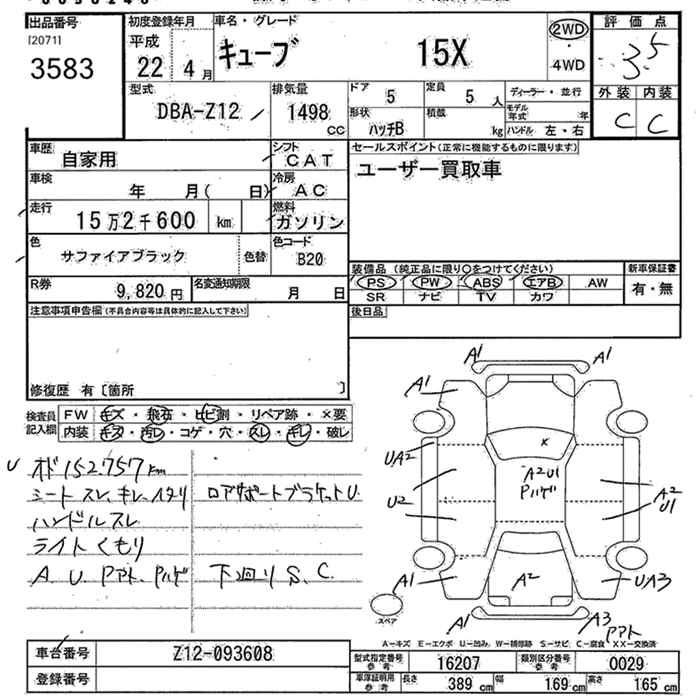 出品番号
I20711
3583
初度登録年月
平成
22 4月
車名・グレード
キューブ 15X
2WD
・
4WD
評価点
3.5
外装 内装
C C
型式
DBA-Z12
排気量
1498
CC
ドア
5
定員
5 人
形状
ハッチB
積載
kg
ディーラー・並行
モデル年式 年
ハンドル 左・右
車歴
自家用
シフト
CAT
車検
年 月( 日)
冷房
AC
走行
15万2千600 km
燃料
ガソリン
色
サファイアブラック
色替
色コード
B20
R券
9,820 円
名変通知期限
月 日
セールスポイント(正常に機能するものに限ります)
ユーザー買取車
装備品 (純正品に限り○をつけてください)
PS PW ABS エアB AW
SR ナビ TV カワ
新車保証書
有・無
後日品
注意事項申告欄(不具合内容等は具体的に記入して下さい)
修復歴 有〔箇所 〕
検査員
記入欄
FW キズ・飛石・ヒビ割・リペア跡・×要
内装 キズ・汚レ・コゲ・穴・スレ・キレ・破レ
152757km
シート スレ、キレ、
ハンドルスレ
ライトくもり
A. U. Pアト. Pハゲ
ロアサポートブラケットU.
下廻りS.C.
A1 A1
A1 A1
UA2
U2
A2U1
Pハゲ
A2
U1
A1 A2 UA3
A1 A3
Pアト
スペア
A―キズ E―エクボ U―凹み W―補修跡 S―サビ C―腐食 XX―交換済
車台番号
Z12-093608
登録番号
型式指定番号
参考
16207
類別区分番号
参考
0029
車庫証明用
参考
長さ 389 cm 幅 169 cm 高さ 165 cm